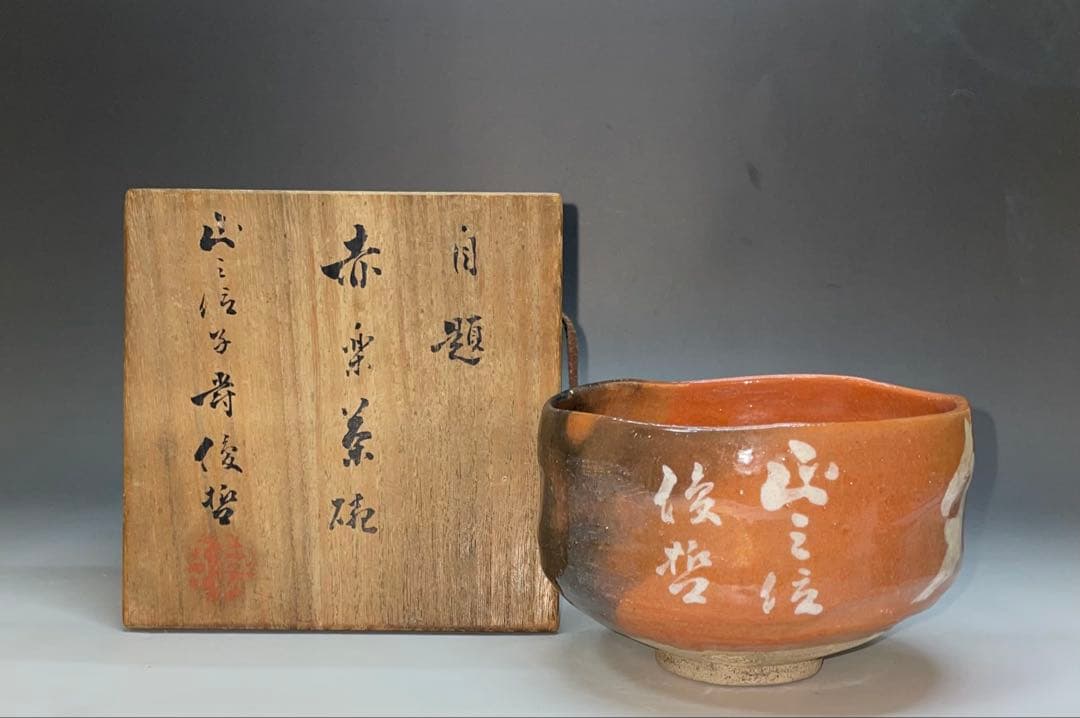 自題
赤楽茶碗
正三位子爵俊哲
正三位
俊哲